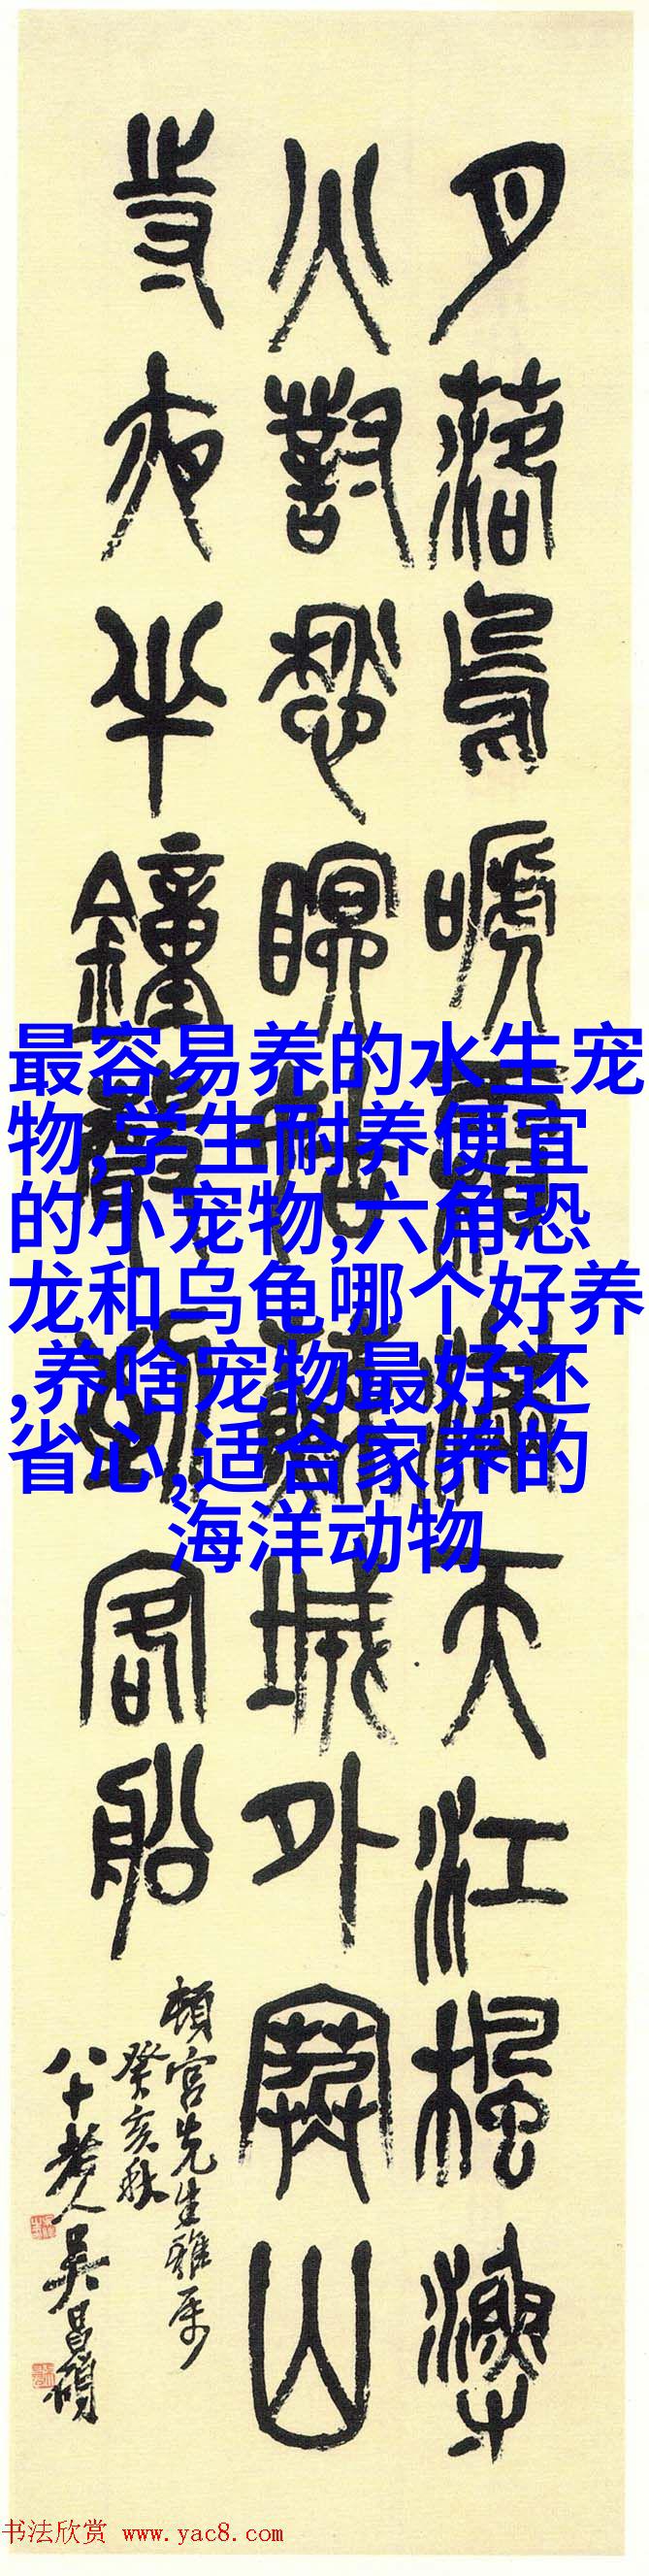 月落烏嗁霜滿天江楓漁
火對愁瞑姑蘇城外寒山
寺夜半鐘聲到客船
頓宮先生雅屬
癸亥秋
八十老人吳昌碩
最容易养的水生宠
物,学生耐养便宜
的小宠物,六角恐
龙和乌龟哪个好养
,养啥宠物最好还
省心,适合家养的
海洋动物
书法欣赏 www.yac8.com